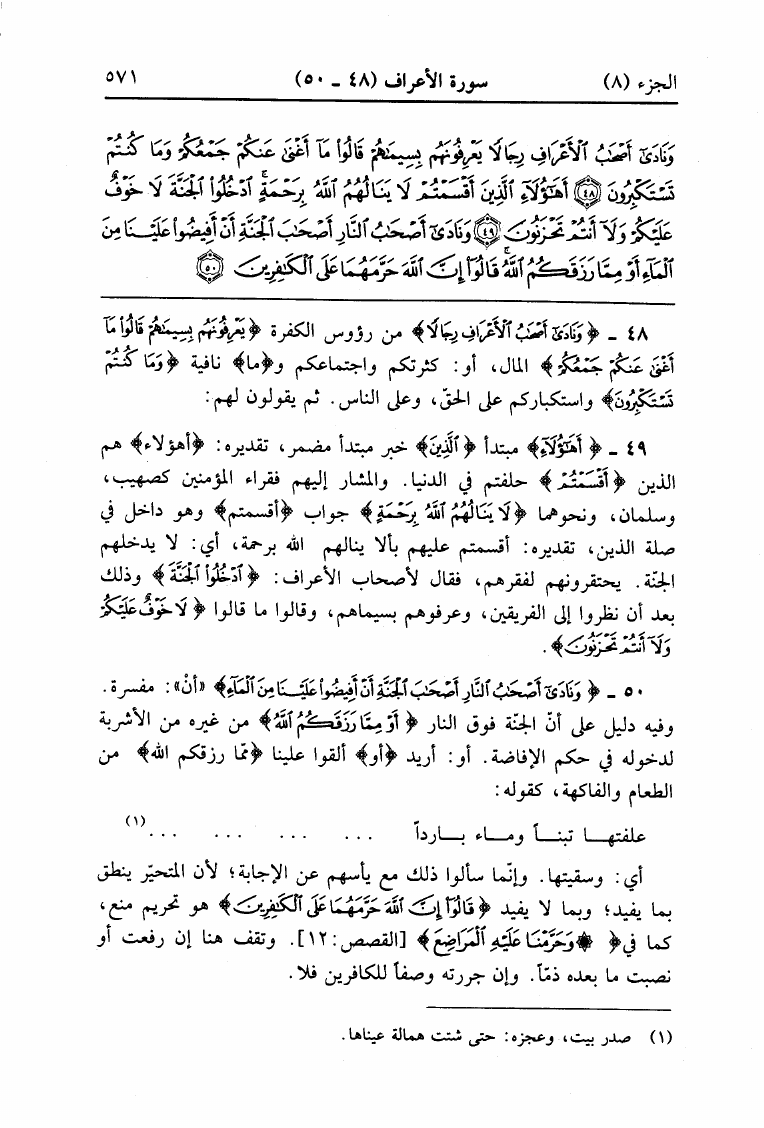 الجزء (٨) سورة الأعراف (٤٨ ـ ٥٠) ٥٧١
وَنَادَىٰٓ أَصْحَٰبُ ٱلْأَعْرَافِ رِجَالًا يَعْرِفُونَهُم بِسِيمَىٰهُمْ قَالُوا۟ مَآ أَغْنَىٰ عَنكُمْ جَمْعُكُمْ وَمَا كُنتُمْ
تَسْتَكْبِرُونَ ﴿٤٨﴾ أَهَٰٓؤُلَآءِ ٱلَّذِينَ أَقْسَمْتُمْ لَا يَنَالُهُمُ ٱللَّهُ بِرَحْمَةٍ ۚ ٱدْخُلُوا۟ ٱلْجَنَّةَ لَا خَوْفٌ
عَلَيْكُمْ وَلَآ أَنتُمْ تَحْزَنُونَ ﴿٤٩﴾ وَنَادَىٰٓ أَصْحَٰبُ ٱلنَّارِ أَصْحَٰبَ ٱلْجَنَّةِ أَنْ أَفِيضُوا۟ عَلَيْنَا مِنَ
ٱلْمَآءِ أَوْ مِمَّا رَزَقَكُمُ ٱللَّهُ ۚ قَالُوٓا۟ إِنَّ ٱللَّهَ حَرَّمَهُمَا عَلَى ٱلْكَٰفِرِينَ ﴿٥٠﴾
٤٨ ـ ﴿وَنَادَىٰٓ أَصْحَٰبُ ٱلْأَعْرَافِ رِجَالًا﴾ من رؤوس الكفرة ﴿يَعْرِفُونَهُم بِسِيمَىٰهُمْ قَالُوا۟ مَآ
أَغْنَىٰ عَنكُمْ جَمْعُكُمْ﴾ المال، أو: كثرتكم واجتماعكم و﴿ما﴾ نافية ﴿وَمَا كُنتُمْ
تَسْتَكْبِرُونَ﴾ واستكباركم على الحقّ، وعلى الناس. ثم يقولون لهم:
٤٩ ـ ﴿أَهَٰٓؤُلَآءِ﴾ مبتدأ ﴿ٱلَّذِينَ﴾ خبر مبتدأ مضمر، تقديره: ﴿أهؤلاء﴾ هم
الذين ﴿أَقْسَمْتُمْ﴾ حلفتم في الدنيا. والمشار إليهم فقراء المؤمنين كصهيب،
وسلمان، ونحوهما ﴿لَا يَنَالُهُمُ ٱللَّهُ بِرَحْمَةٍ﴾ جواب ﴿أقسمتم﴾ وهو داخل في
صلة الذين، تقديره: أقسمتم عليهم بألا ينالهم الله برحمة، أي: لا يدخلهم
الجنّة. يحتقرونهم لفقرهم، فقال لأصحاب الأعراف: ﴿ٱدْخُلُوا۟ ٱلْجَنَّةَ﴾ وذلك
بعد أن نظروا إلى الفريقين، وعرفوهم بسيماهم، وقالوا ما قالوا ﴿لَا خَوْفٌ عَلَيْكُمْ
وَلَآ أَنتُمْ تَحْزَنُونَ﴾.
٥٠ ـ ﴿وَنَادَىٰٓ أَصْحَٰبُ ٱلنَّارِ أَصْحَٰبَ ٱلْجَنَّةِ أَنْ أَفِيضُوا۟ عَلَيْنَا مِنَ ٱلْمَآءِ﴾ «أنْ»: مفسرة.
وفيه دليل على أنّ الجنّة فوق النار ﴿أَوْ مِمَّا رَزَقَكُمُ ٱللَّهُ﴾ من غيره من الأشربة
لدخوله في حكم الإفاضة. أو: أريد ﴿أو﴾ ألقوا علينا ﴿ممّا رزقكم الله﴾ من
الطعام والفاكهة، كقوله:
علفتهـا تبنـاً ومـاء بـارداً ... ... ... ...(١)
أي: وسقيتها. وإنّما سألوا ذلك مع يأسهم عن الإجابة؛ لأن المتحيّر ينطق
بما يفيد؛ وبما لا يفيد ﴿قَالُوٓا۟ إِنَّ ٱللَّهَ حَرَّمَهُمَا عَلَى ٱلْكَٰفِرِينَ﴾ هو تحريم منع،
كما في﴿ ۞وَحَرَّمْنَا عَلَيْهِ ٱلْمَرَاضِعَ﴾ [القصص: ١٢]. وتقف هنا إن رفعت أو
نصبت ما بعده ذمّاً. وإن جررته وصفاً للكافرين فلا.
(١) صدر بيت، وعجزه: حتى شتت همالة عيناها.